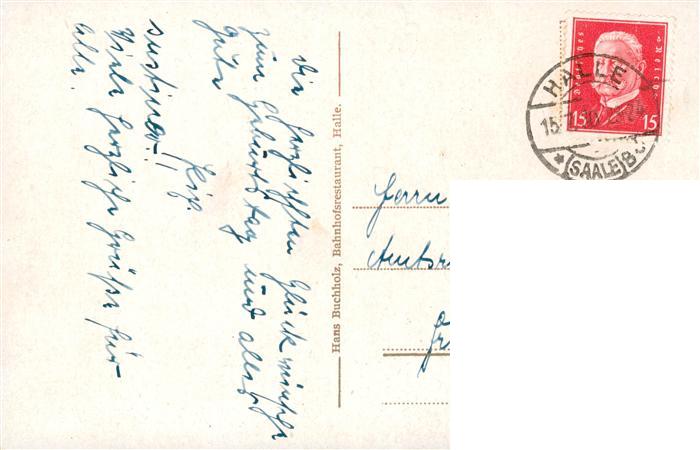 Die herzlichsten Glückwünsche
zum Geburtstag und alles
Gute
Viele herzliche Grüße für
alle.
Hans Buchholz, Bahnhofsrestaurant, Halle.
Deutsches Reich
15 15
HALLE
15.
(SAALE)
Herrn